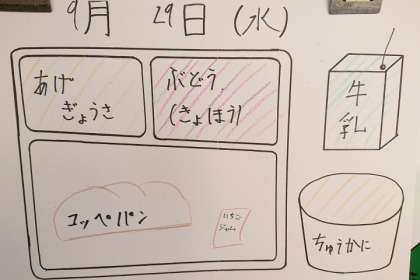 9月 29日 (水)
あげ
ぎょうさ
ぶどう
(きょほう)
牛
乳
コッペパン
いちご
ジャム
ちゅうかに